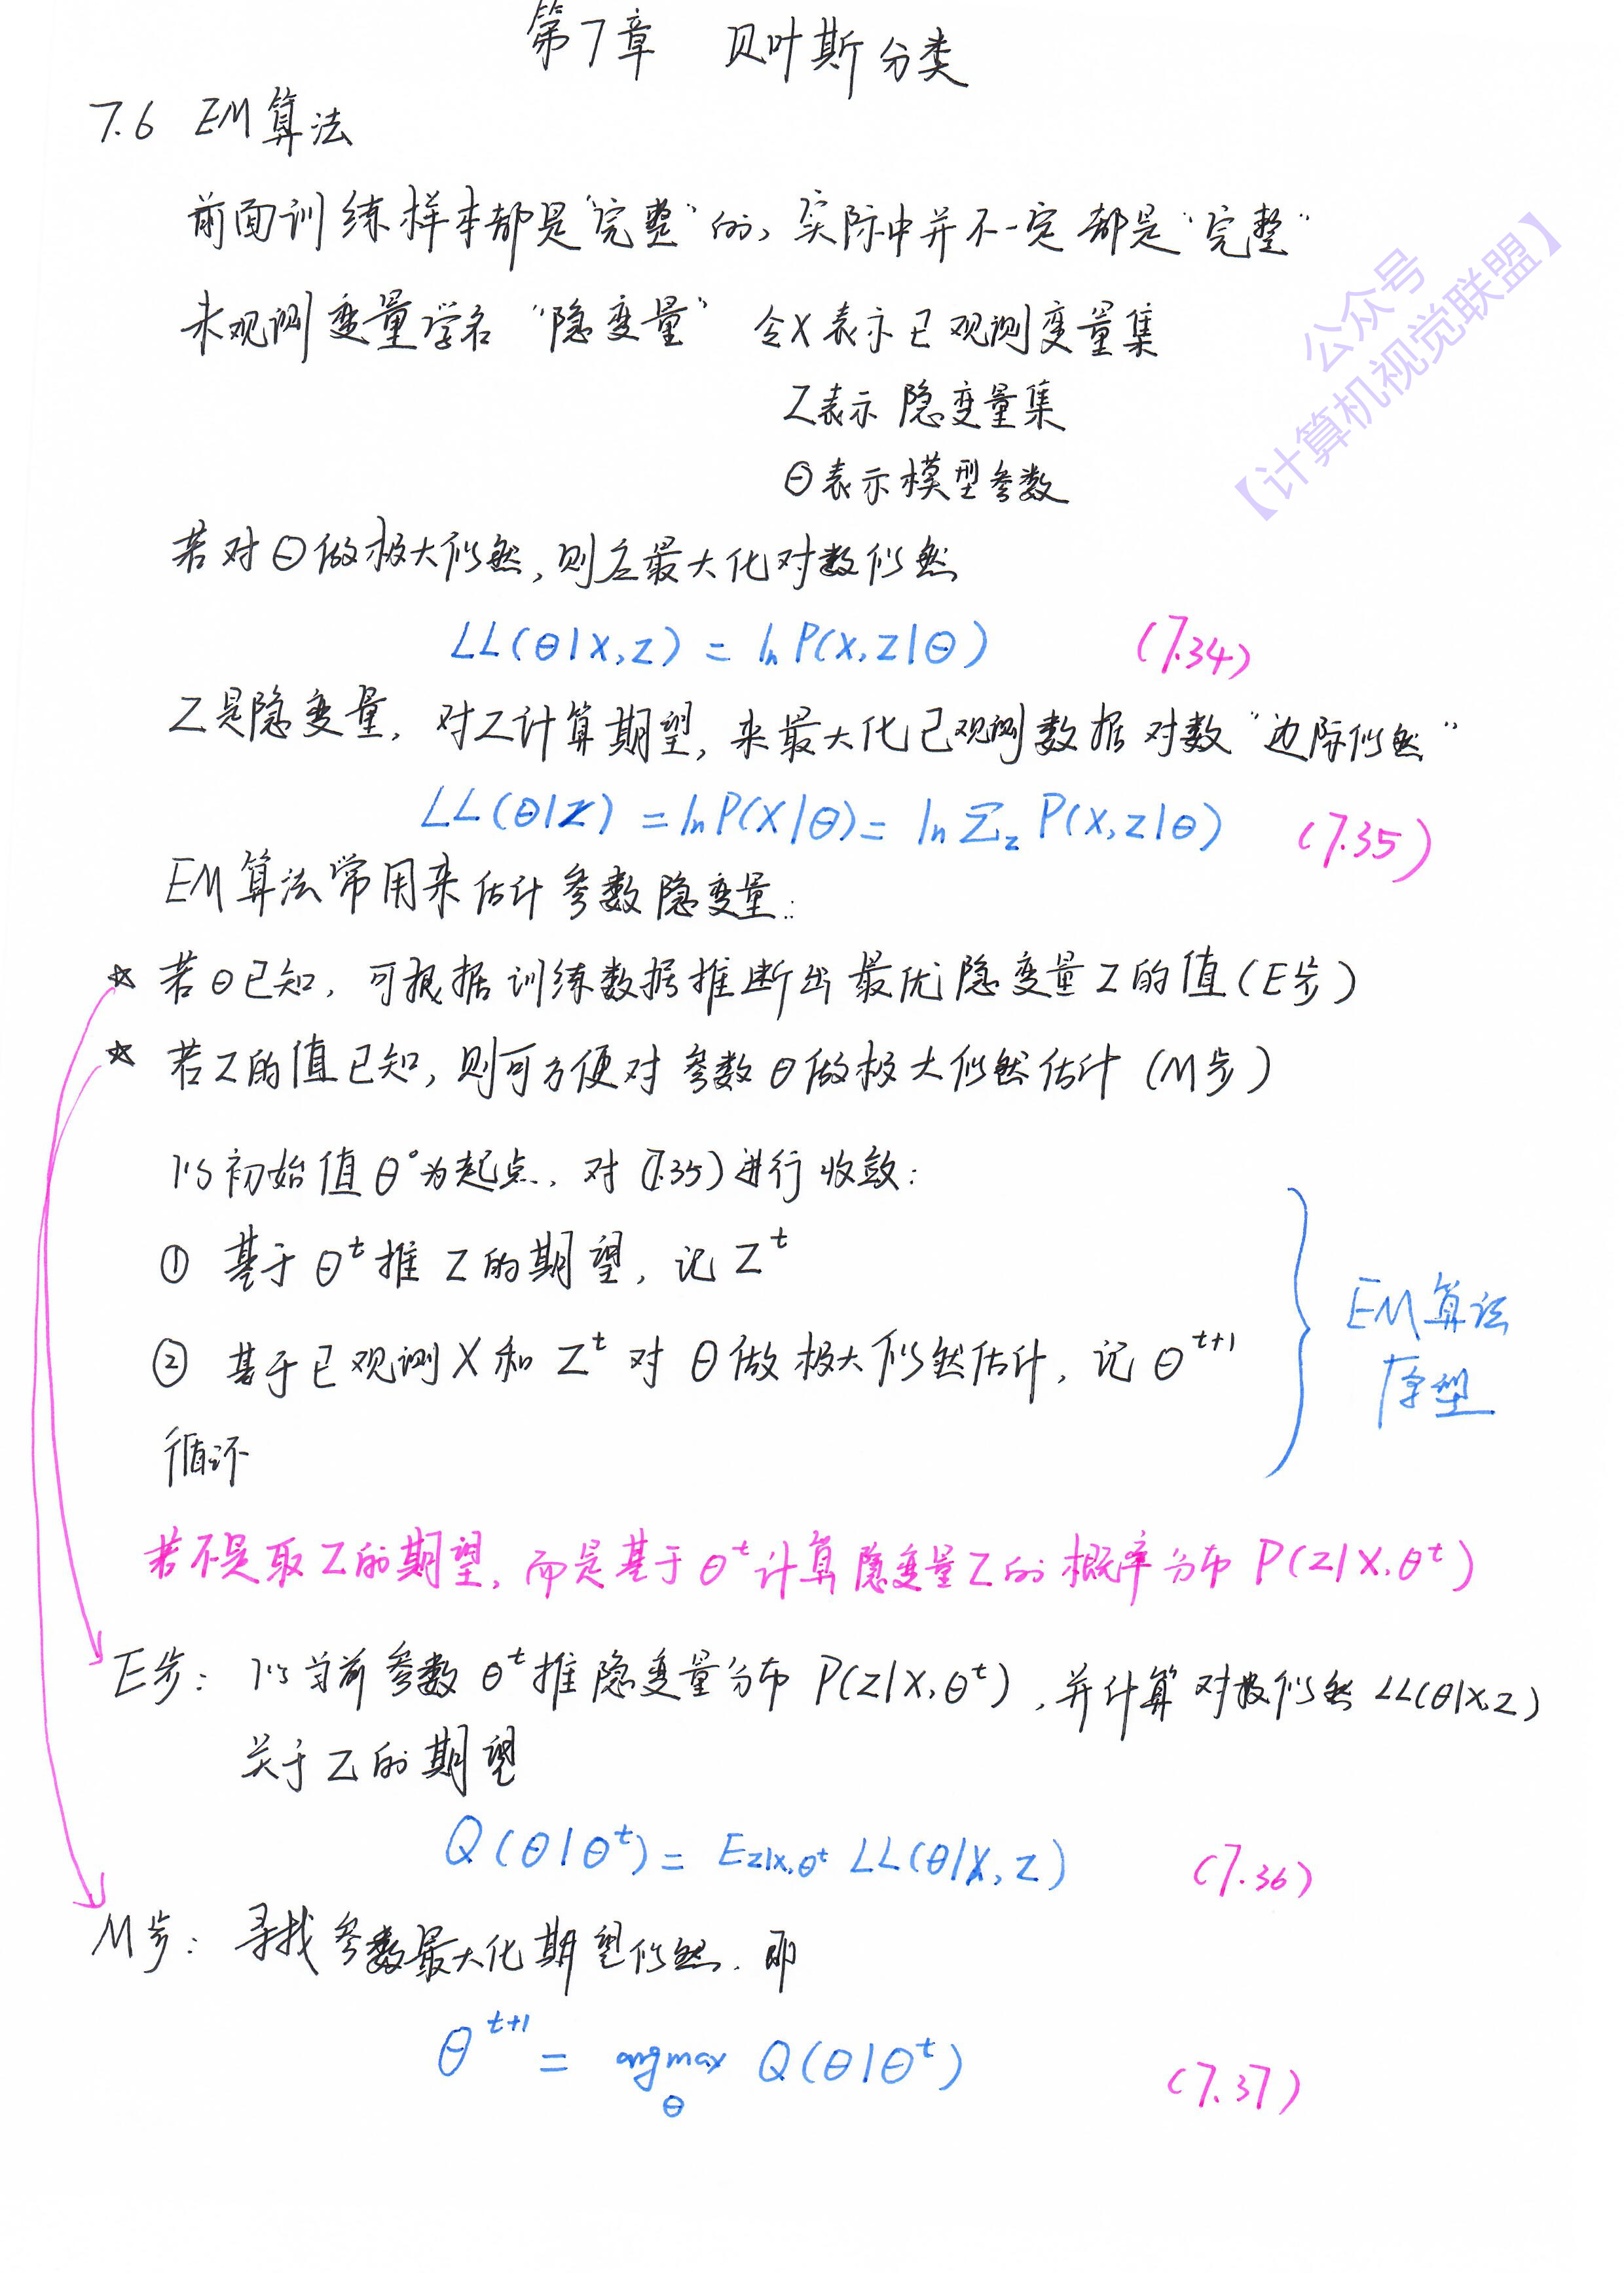 第7章 贝叶斯分类
7.6 EM算法
前面训练样本都是“完整”的, 实际中并不一定都是“完整”
未观测变量学名 “隐变量” 令X表示已观测变量集
Z表示 隐变量集
Θ表示模型参数
公众号
【计算机视觉联盟】
若对Θ做极大似然, 则应最大化对数似然
LL(Θ|X,Z) = ln P(X,Z|Θ) (7.34)
Z是隐变量, 对Z计算期望, 来最大化已观测数据对数“边际似然”
LL(Θ|Z) = ln P(X|Θ) = ln Σ_z P(X,Z|Θ) (7.35)
EM算法常用来估计参数隐变量:
☆ 若Θ已知, 可根据训练数据推断出最优隐变量Z的值(E步)
☆ 若Z的值已知, 则可方便对参数Θ做极大似然估计 (M步)
以初始值Θ⁰为起点, 对(7.35)进行收敛:
① 基于Θ^t推Z的期望, 记Z^t
② 基于已观测X和Z^t对Θ做极大似然估计, 记Θ^{t+1}
循环
EM算法
原型
若不是取Z的期望, 而是基于Θ^t计算隐变量Z的概率分布 P(Z|X,Θ^t)
E步: 以当前参数Θ^t推隐变量分布 P(Z|X,Θ^t), 并计算对数似然 LL(Θ|X,Z)
关于Z的期望
Q(Θ|Θ^t) = E_{Z|X,Θ^t} LL(Θ|X,Z) (7.36)
M步: 寻找参数最大化期望似然, 即
Θ^{t+1} = argmax_Θ Q(Θ|Θ^t) (7.37)